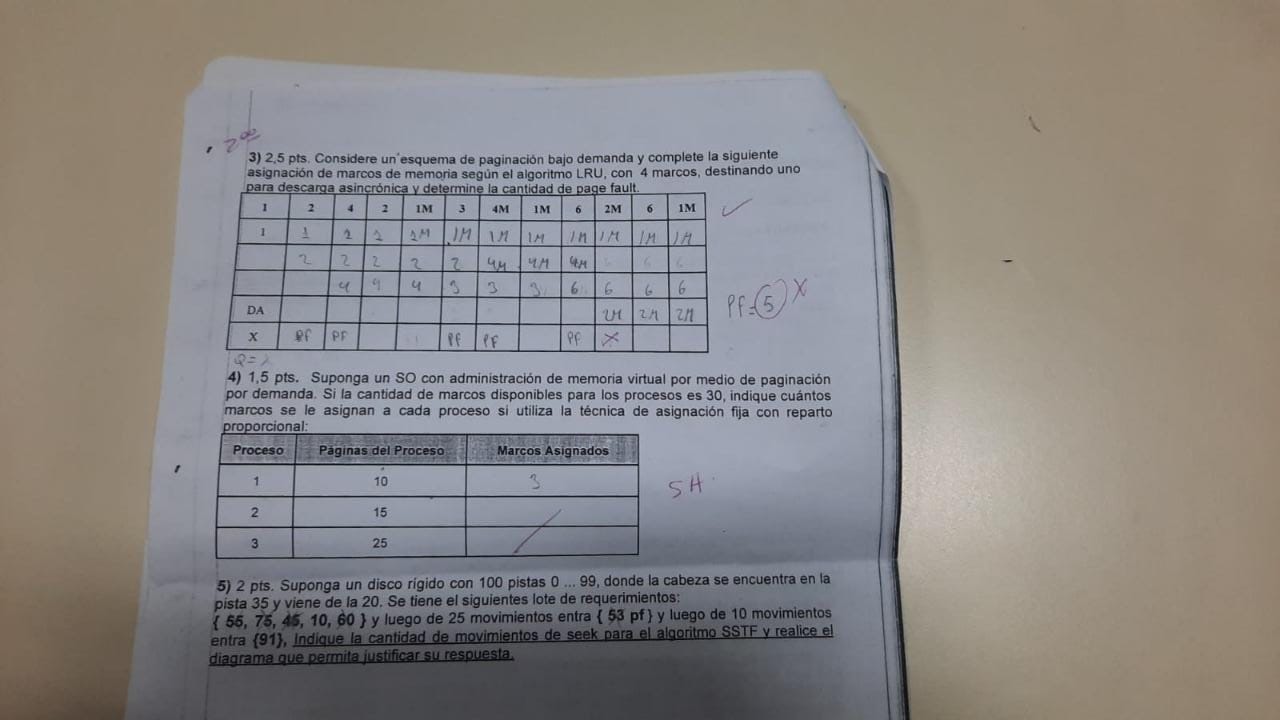 2⁰⁰
3) 2,5 pts. Considere un esquema de paginación bajo demanda y complete la siguiente
asignación de marcos de memoria según el algoritmo LRU, con 4 marcos, destinando uno
para descarga asincrónica y determine la cantidad de page fault.
1 2 4 2 1M 3 4M 1M 6 2M 6 1M
1 1 1 1 1M 1M 1M 1M 1M 1M 1M 1M
2 2 2 2 2 4M 4M 4M 6 6 6
4 4 4 3 3 3 6 6 6 6
DA 2M 2M 2M
X PF PF PF PF PF X
PF = 5 X
4) 1,5 pts. Suponga un SO con administración de memoria virtual por medio de paginación
por demanda. Si la cantidad de marcos disponibles para los procesos es 30, indique cuántos
marcos se le asignan a cada proceso si utiliza la técnica de asignación fija con reparto
proporcional:
Proceso Páginas del Proceso Marcos Asignados
1 10 3
2 15
3 25
5) 2 pts. Suponga un disco rígido con 100 pistas 0 ... 99, donde la cabeza se encuentra en la
pista 35 y viene de la 20. Se tiene el siguientes lote de requerimientos:
{ 55, 75, 45, 10, 60 } y luego de 25 movimientos entra { 53 pf } y luego de 10 movimientos
entra {91}, Indique la cantidad de movimientos de seek para el algoritmo SSTF y realice el
diagrama que permita justificar su respuesta.